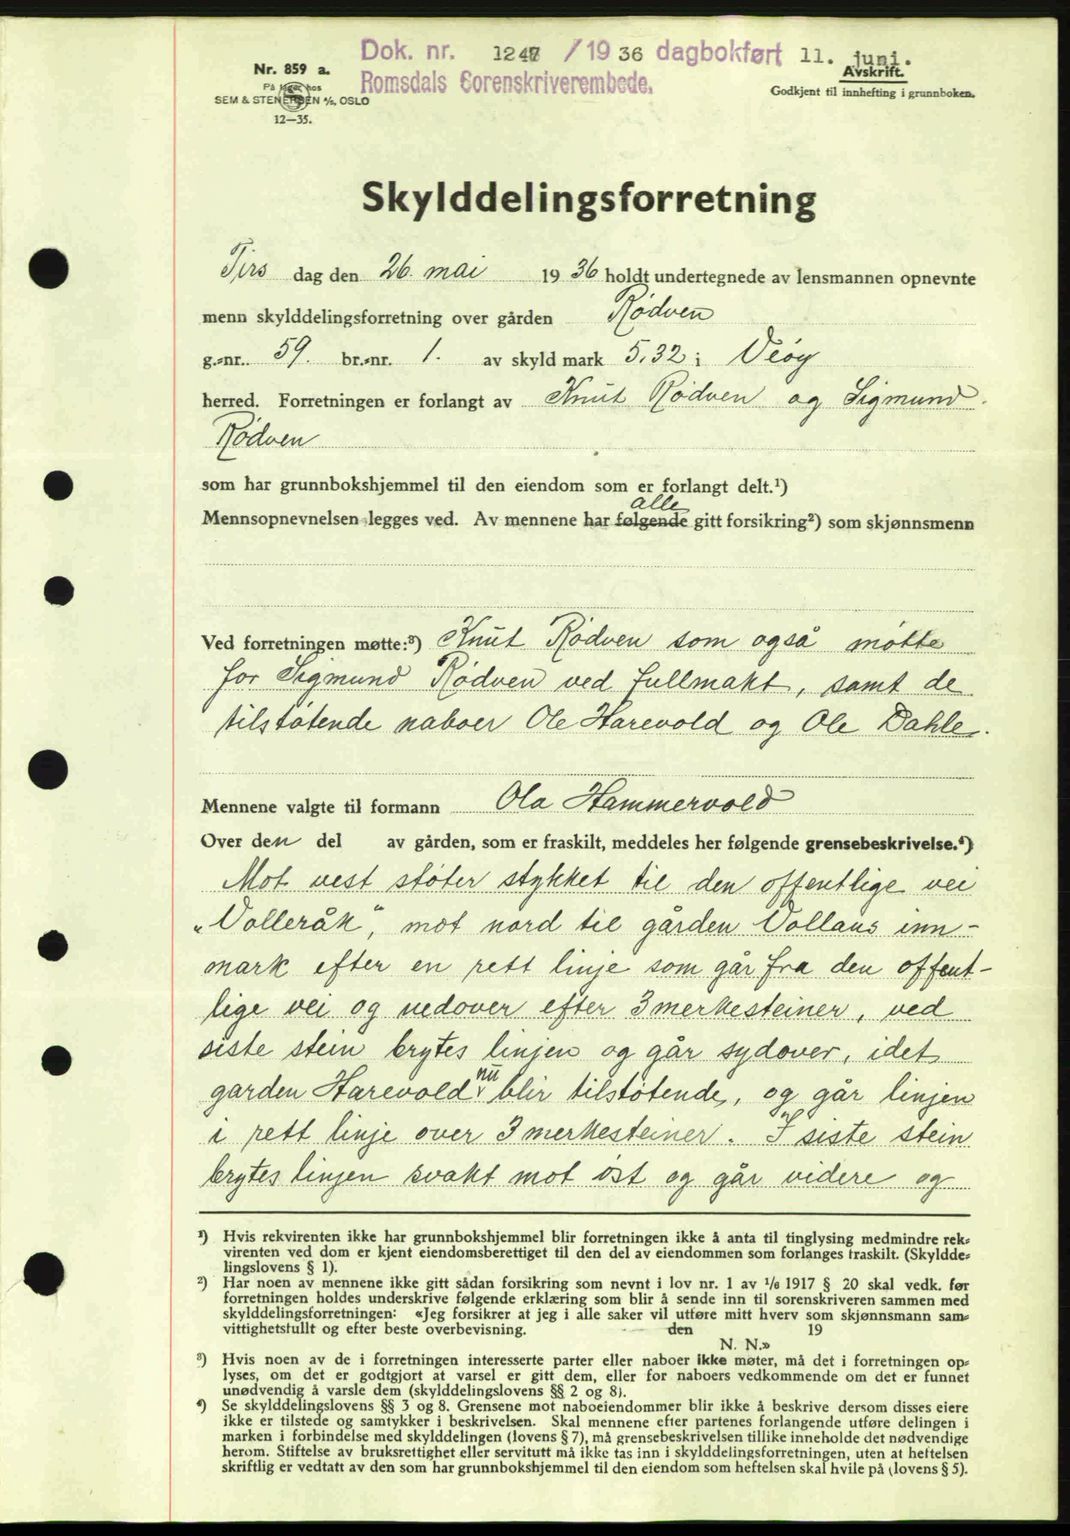 Dok. nr. 1247 / 1936 dagbokført 11. juni.
Romsdals Sorenskriverembede.
Nr. 859 a.
På lager hos
SEM & STENERSEN A/S, OSLO
12—35.
Avskrift.
Godkjent til innhefting i grunnboken.
Skylddelingsforretning
Tirs dag den 26. mai 1936 holdt undertegnede av lensmannen opnevnte
menn skylddelingsforretning over gården Rødven
g.-nr. 59. br.-nr. 1. av skyld mark 5,32 i Veøy
herred. Forretningen er forlangt av Knut Rødven og Sigmund
Rødven
som har grunnbokshjemmel til den eiendom som er forlangt delt.¹)
alle
Mennsopnevnelsen legges ved. Av mennene har følgende gitt forsikring²) som skjønnsmenn
Ved forretningen møtte:³) Knut Rødven som også møtte
for Sigmund Rødven ved fullmakt, samt de
tilstøtende naboer Ole Harevold og Ole Dahle.
Mennene valgte til formann Ola Hammervold
Over den del av gården, som er fraskilt, meddeles her følgende grensebeskrivelse.⁴)
Mot vest støter stykket til den offentlige vei
„Volleråk", mot nord til gården Vollans inn-
mark efter en rett linje som går fra den offent-
lige vei og nedover efter 3 merkesteiner, ved
siste stein brytes linjen og går sydover, idet
nu
garden Harevold blir tilstøtende, og går linjen
i rett linje over 3 merkesteiner. I siste stein
brytes linjen svakt mot øst og går videre og
¹) Hvis rekvirenten ikke har grunnbokshjemmel blir forretningen ikke å anta til tinglysing medmindre rek-
virenten ved dom er kjent eiendomsberettiget til den del av eiendommen som forlanges fraskilt. (Skyldde-
lingslovens § 1).
²) Har noen av mennene ikke gitt sådan forsikring som nevnt i lov nr. 1 av 1/6 1917 § 20 skal vedk. før
forretningen holdes underskrive følgende erklæring som blir å sende inn til sorenskriveren sammen med
skylddelingsforretningen: «Jeg forsikrer at jeg i alle saker vil utføre mitt hverv som skjønnsmann sam-
vittighetsfullt og efter beste overbevisning. den 19
N. N.»
³) Hvis noen av de i forretningen interesserte parter eller naboer ikke møter, må det i forretningen op-
lyses, om det er godtgjort at varsel er gitt dem, eller for naboers vedkommende om det er funnet
unødvendig å varsle dem (skylddelingslovens §§ 2 og 8).
⁴) Se skylddelingslovens §§ 3 og 8. Grensene mot naboeiendommer blir ikke å beskrive dersom disses eiere
ikke er tilstede og samtykker i beskrivelsen. Skal mennene efter partenes forlangende utføre delingen i
marken i forbindelse med skylddelingen (lovens § 7), må grensebeskrivelsen tillike inneholde det nødvendige
herom. Stiftelse av bruksrettighet eller servitutt må ikke tas inn i skylddelingsforretningen, uten at heftelsen
skriftlig er vedtatt av den som har grunnbokshjemmel til den eiendom som heftelsen skal hvile på (lovens § 5).